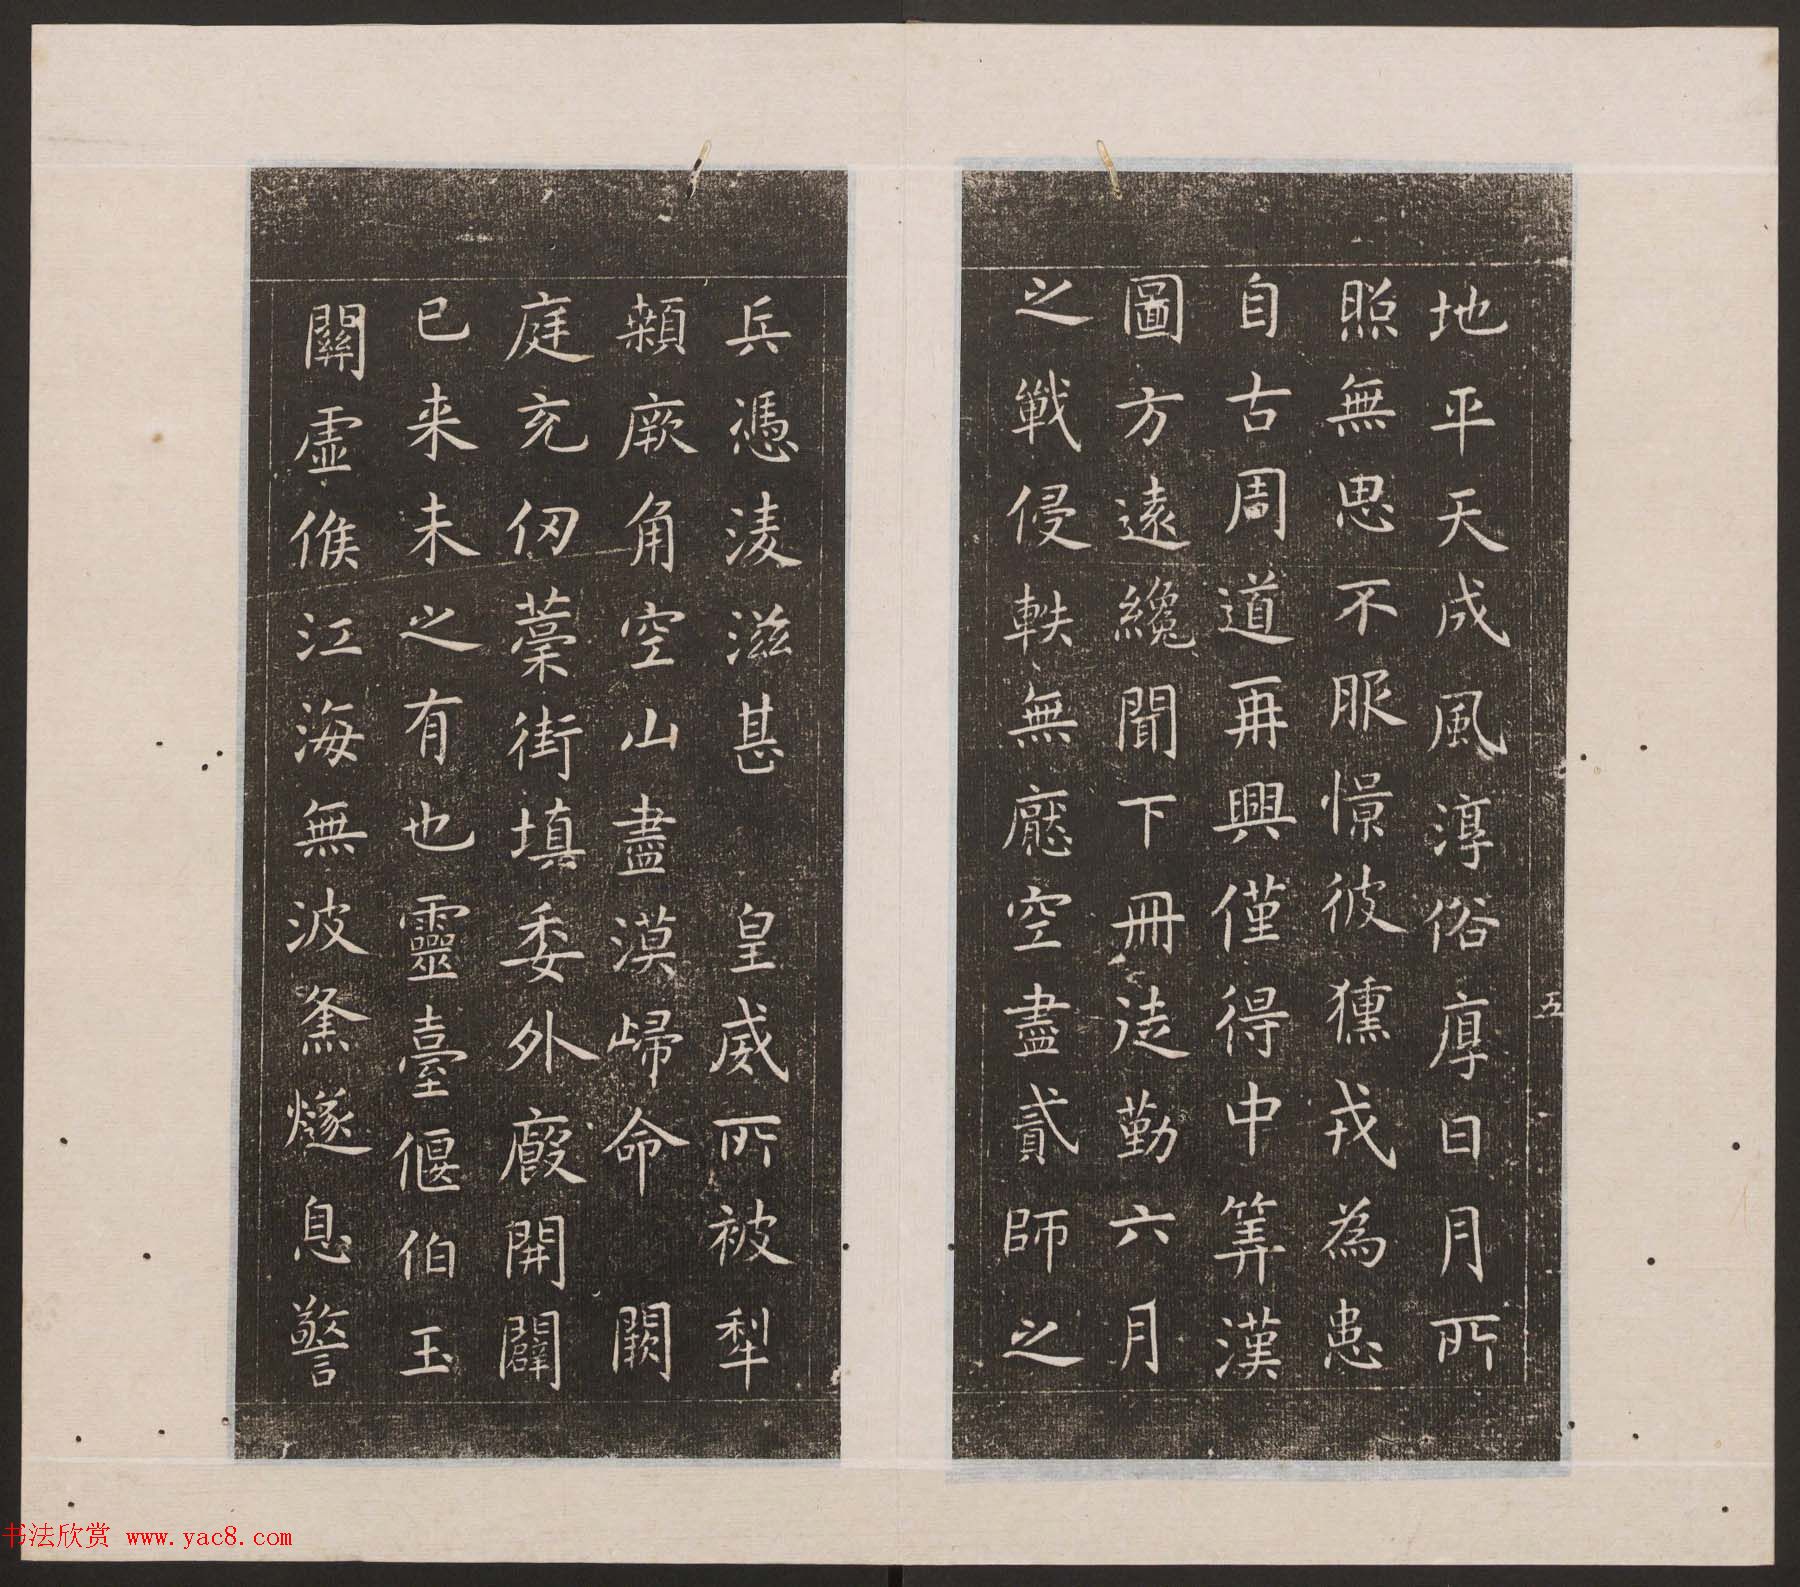 地平天成風淳俗厚日月所
照無思不服憬彼獯戎為患
自古周道再興僅得中筭漢
圖方遠纔聞下冊徒勤六月
之戰侵軼無厭空盡貳師之
五
兵憑淩滋甚皇威所被犁
顙厥角空山盡漠歸命闕
庭充仞藁街填委外廄開闢
已来未之有也靈臺偃伯玉
關虛候江海無波烽燧息警
书法欣赏 www.yac8.com